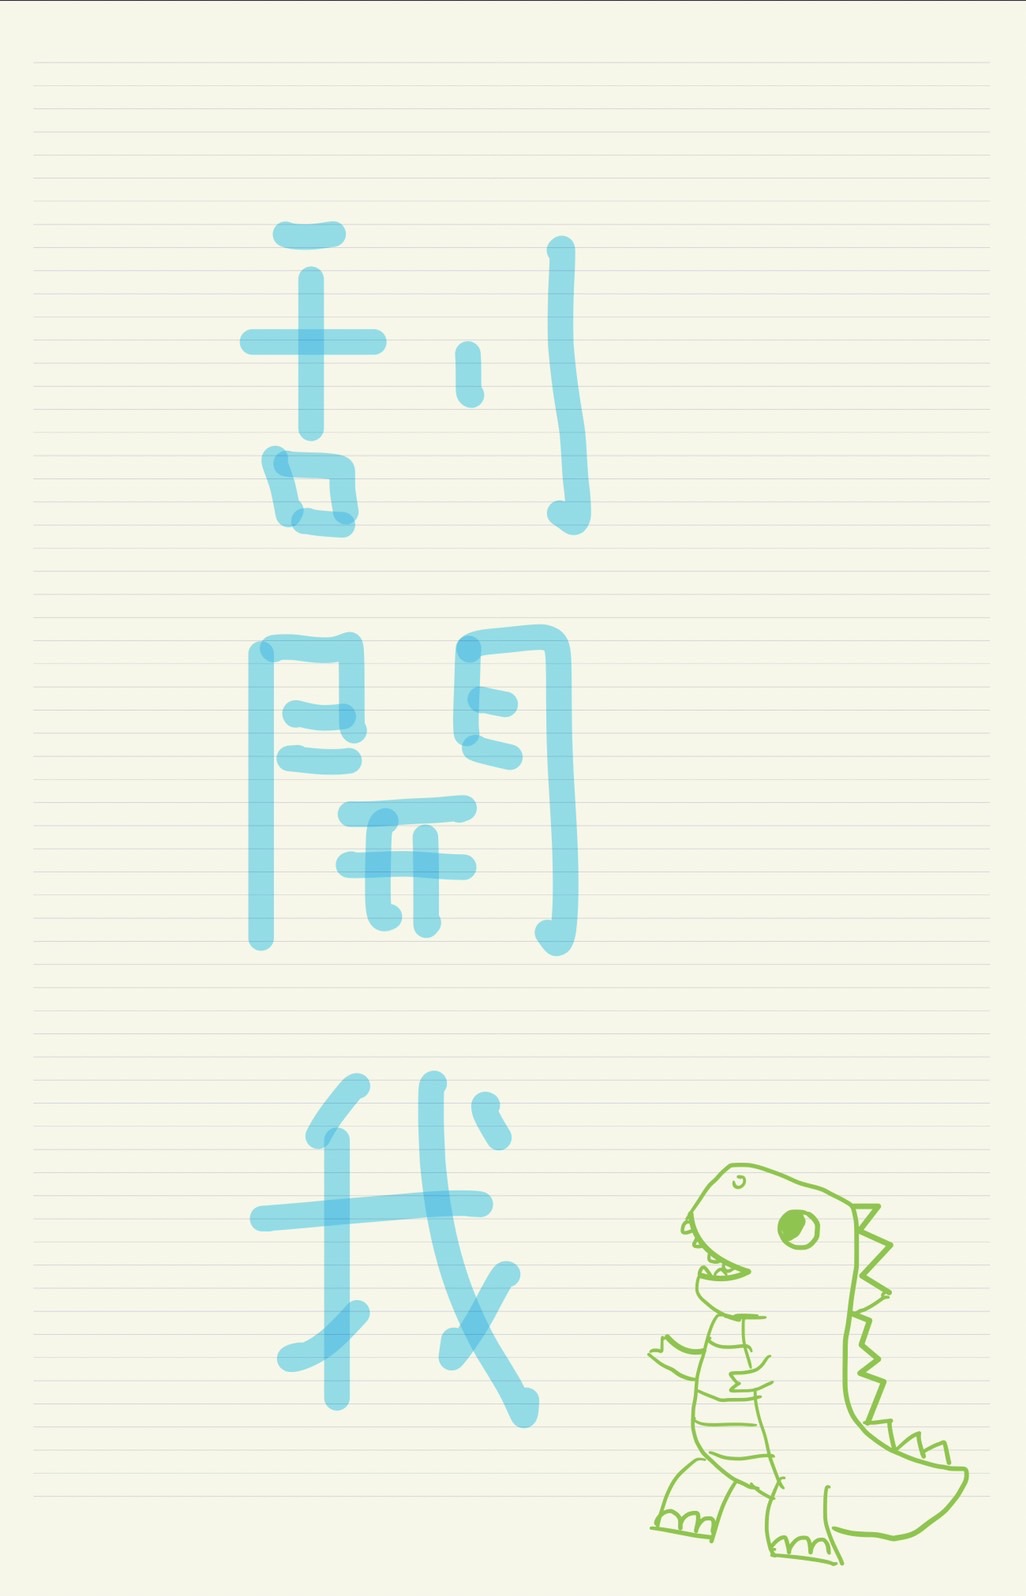 刮
開
我